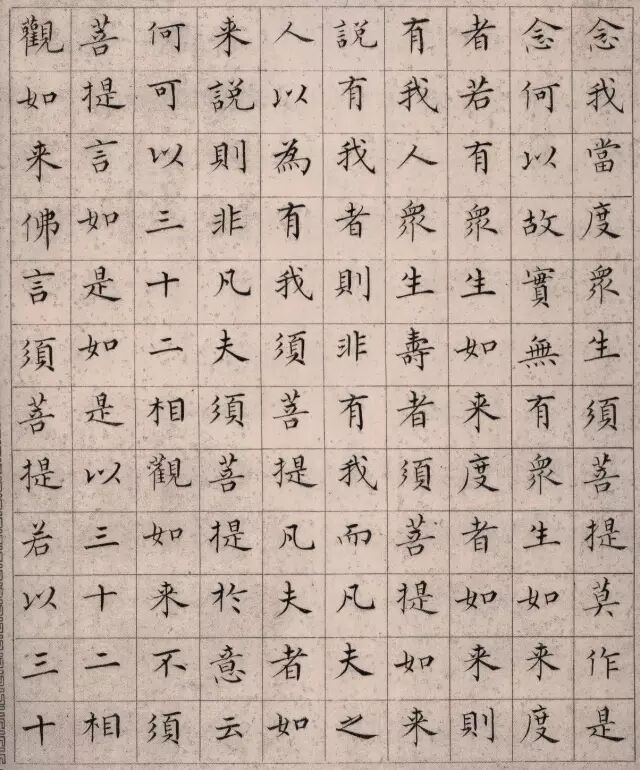 念我當度衆生須菩提莫作是
念何以故實無有衆生如来度
者若有衆生如来度者如来則
有我人衆生壽者須菩提如来
説有我者則非有我而凡夫之
人以為有我須菩提凡夫者如
来説則非凡夫須菩提於意云
何可以三十二相觀如来不須
菩提言如是如是以三十二相
觀如来佛言須菩提若以三十